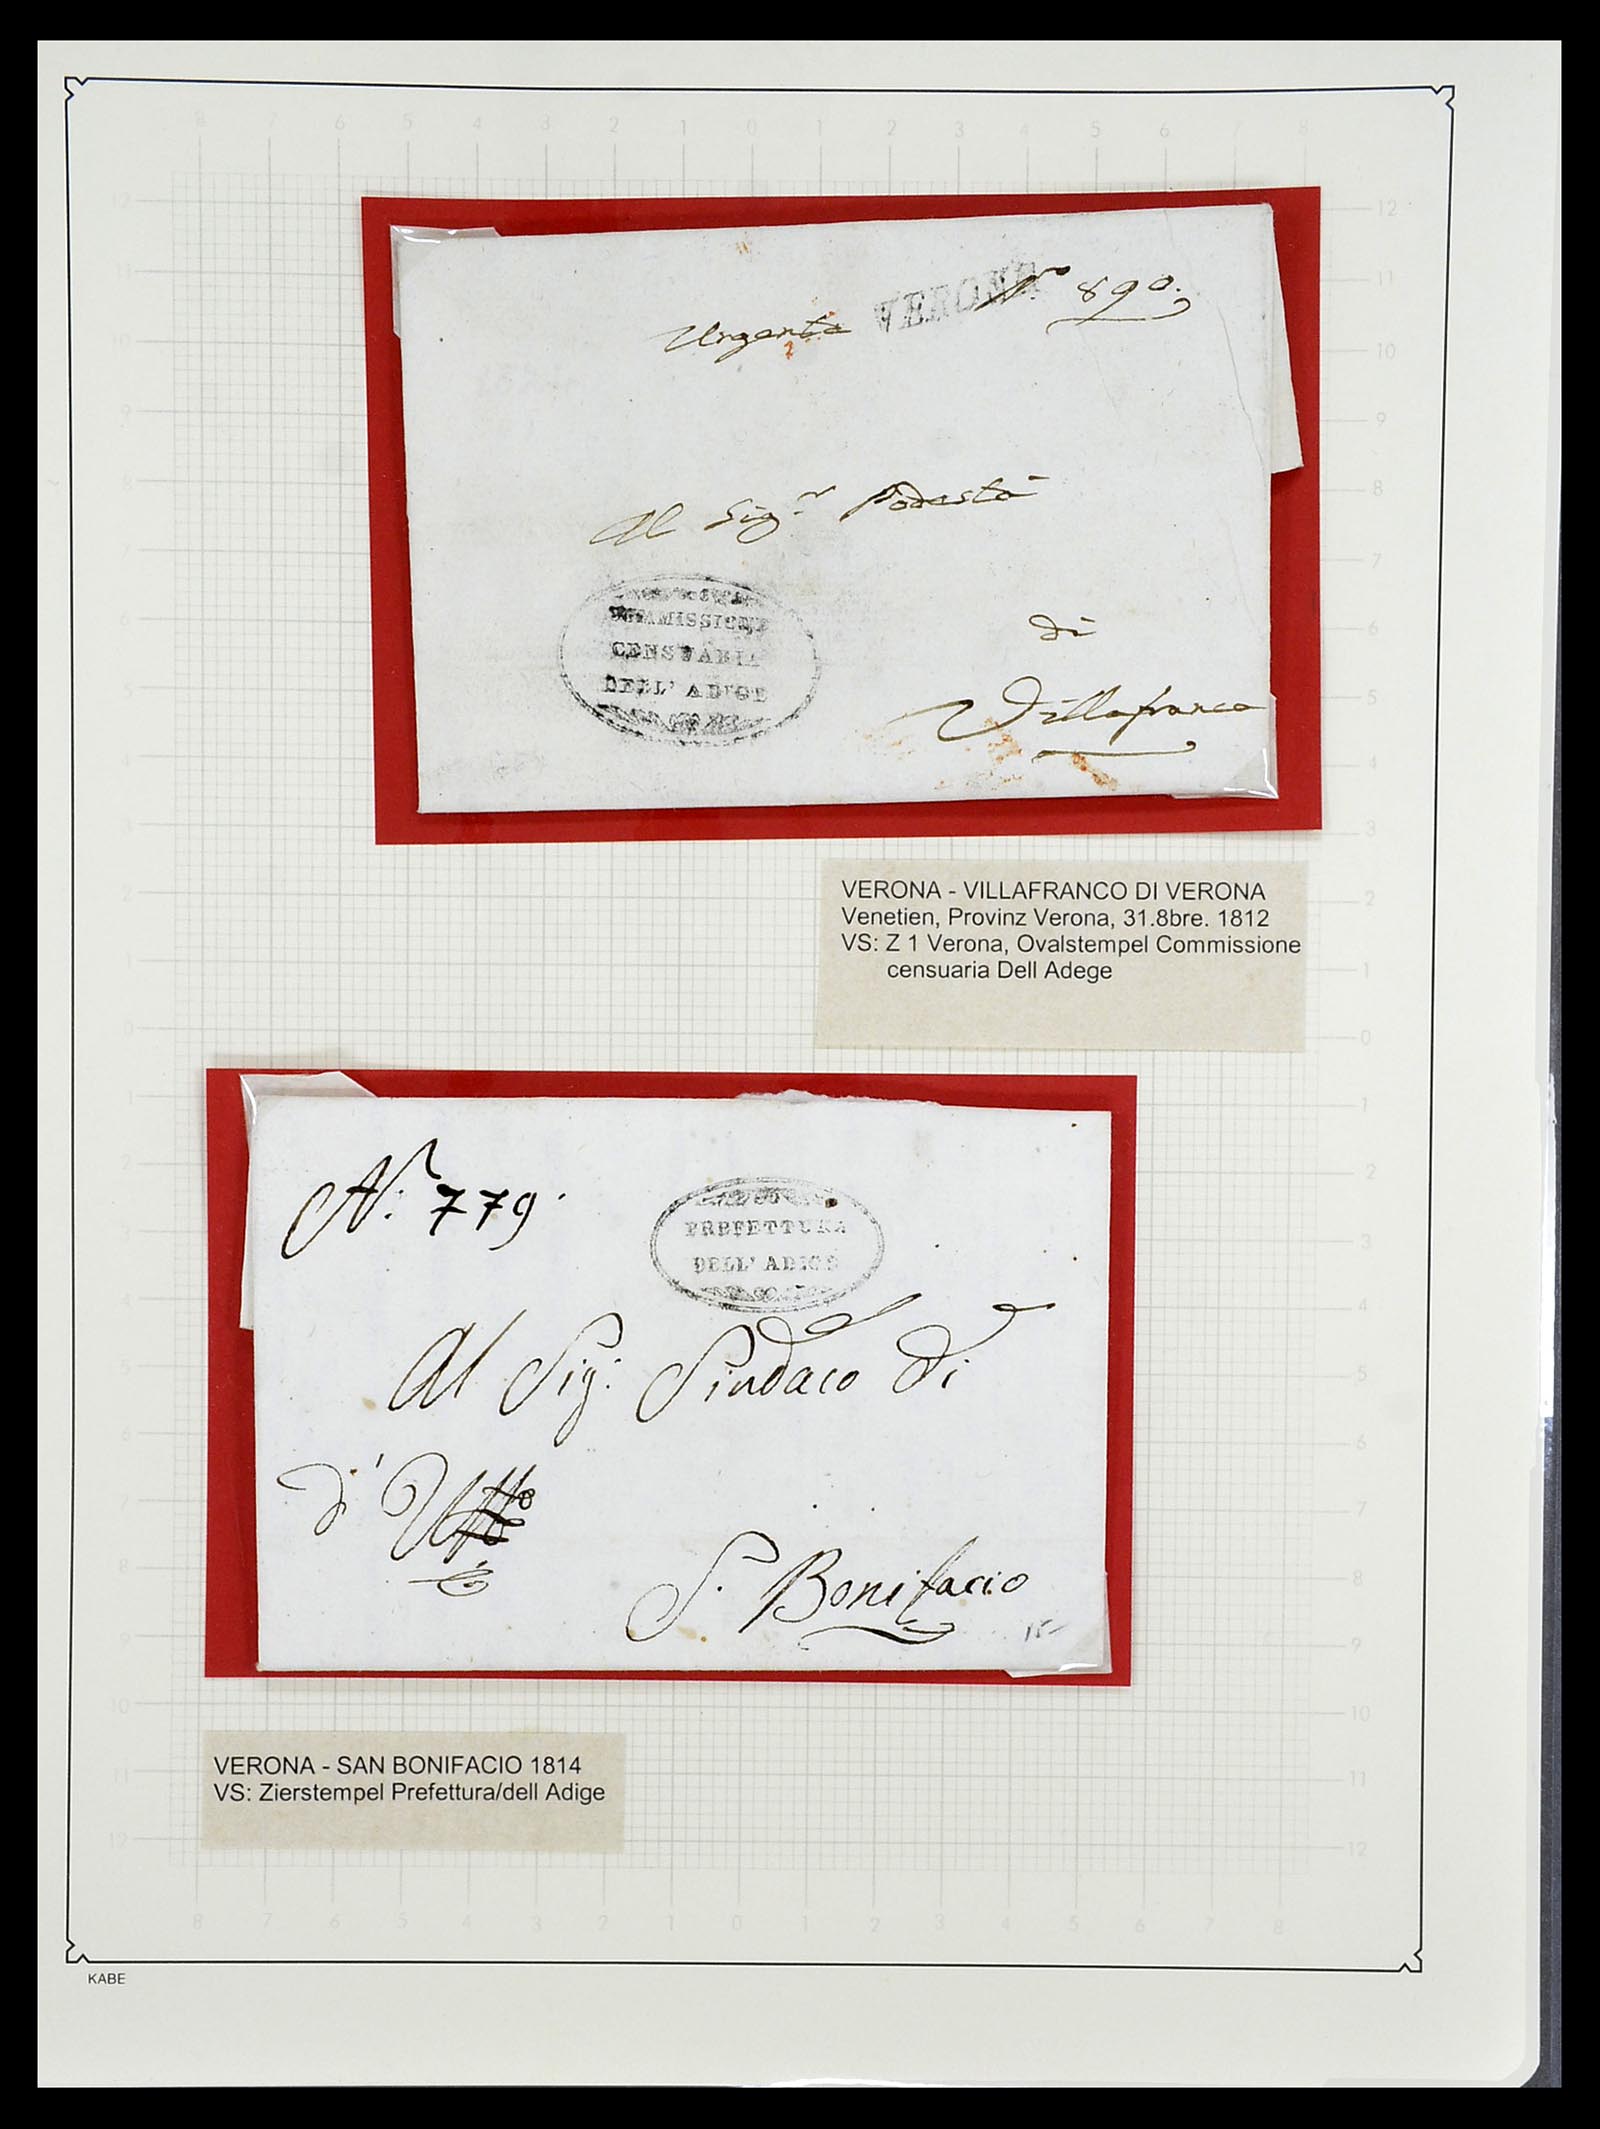 8 7 6 5 4 3 2 1 0 1 2 3 4 5 6 7 8
Urgente VERONA N.º 890.
Al Sig.r Podestà
COMMISSIONE
CENSUARIA
DELL' ADIGE
di
Villafranca
VERONA - VILLAFRANCO DI VERONA
Venetien, Provinz Verona, 31.8bre. 1812
VS: Z 1 Verona, Ovalstempel Commissione
censuaria Dell Adege
N.: 779.
PREFETTURA
DELL' ADIGE
Al Sig: Sindaco di
d' Uffo
S. Bonifacio
15-
VERONA - SAN BONIFACIO 1814
VS: Zierstempel Prefettura/dell Adige
8 7 6 5 4 3 2 1 0 1 2 3 4 5 6 7 8
KABE